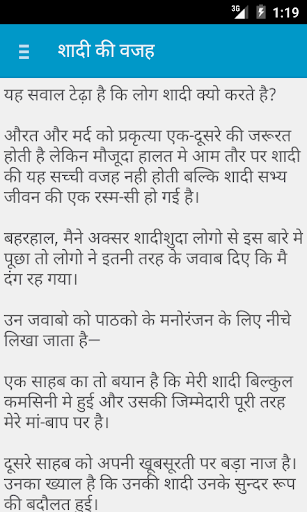 3G 1:19
शादी की वजह
यह सवाल टेढ़ा है कि लोग शादी क्यो करते है?
औरत और मर्द को प्रकृत्या एक-दूसरे की जरूरत
होती है लेकिन मौजूदा हालत मे आम तौर पर शादी
की यह सच्ची वजह नही होती बल्कि शादी सभ्य
जीवन की एक रस्म-सी हो गई है।
बहरहाल, मैने अक्सर शादीशुदा लोगो से इस बारे मे
पूछा तो लोगो ने इतनी तरह के जवाब दिए कि मै
दंग रह गया।
उन जवाबो को पाठको के मनोरंजन के लिए नीचे
लिखा जाता है—
एक साहब का तो बयान है कि मेरी शादी बिल्कुल
कमसिनी मे हुई और उसकी जिम्मेदारी पूरी तरह
मेरे मां-बाप पर है।
दूसरे साहब को अपनी खूबसूरती पर बड़ा नाज है।
उनका ख्याल है कि उनकी शादी उनके सुन्दर रूप
की बदौलत हुई।